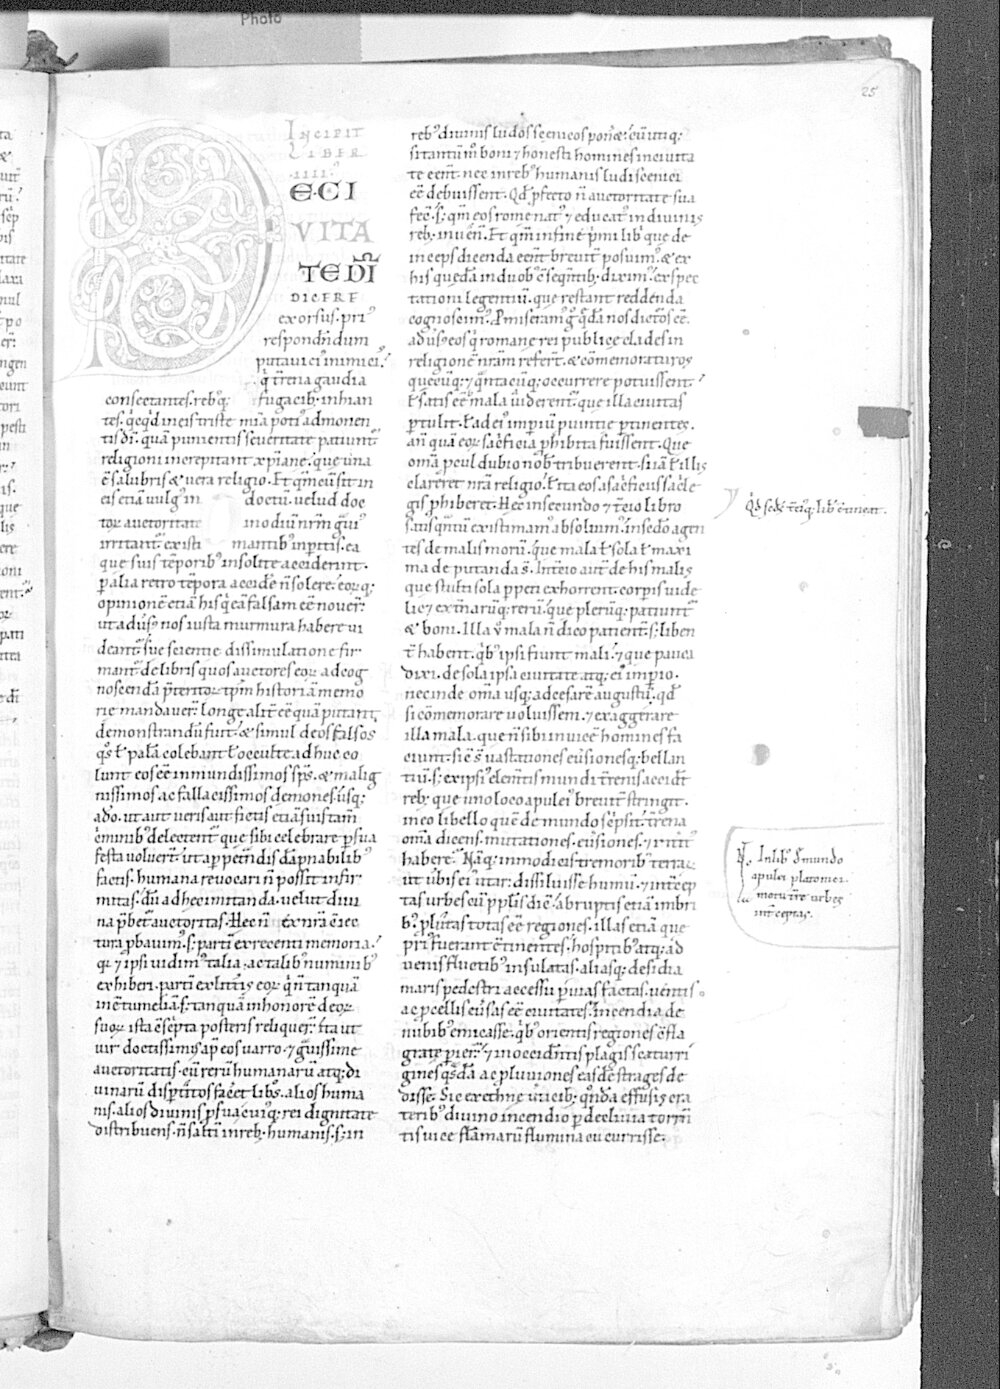 Photo
25
INCIPIT
LIBER
.IIII.
DE CI
VITA
TE DI̅
DICERE
exorsus. pri'
respondn̄dum
putaui ei' inimici.
q̄ trēna gaudia
consectantes. rebq; fugacib; inhian
tes. q̄cq̄d in eis triste mīa poti' admonen
tis dī. quā punientis seueritate patiunt̄
religioni increpitant xp̄iane. que una
ē salubris & uera religio. Et qm̄ cū sit in
eis etiā uulg' in doctū. uelud doc
toꝝ auctoritate
irritant̄. existimantib' inperitis. ea
que suis tēporib' insolite acciderint.
p̄ alia retro tēpora accidē n̄ solere. eoꝝq;
opinionē etiā his q̄ eā falsam eē nouer̄.
ut adus' nos iusta murmura habere ui
deant̄. sue scientie dissimulatione fir
mant. de libris quos auctores eoꝝ ad cog
noscendā p̄teritoꝝ tp̄m historiā memo
rie mandauer̄. longe alit̄ eē quā putant.
demonstrandū fuit. & simul deos falsos
q̄s ł palā colebant ł occulte adhuc co
lunt eos eē inmundissimos sp̄s. & malig
nissimos ac fallacissimos demones. usq;
ado. ut aut ueris aut fictis etiā suis tam̄
criminib' delectent̄ que sibi celebrare p̄ sua
festa uoluer̄. ut a p̄petn̄dis dāpnabilib'
factis. humana reuocari n̄ possit infir
mitas. dū ad hec imitanda. uelut diui
na p̄bet̄ auctoritas. Hec n̄ ex nrā c̄iec
tura p̄bauim'. s; partī ex recenti memoria.
q̄ ⁊ ipsi uidim' talia. ac talib' numinib'
exhiberi. partī ex litt̄is eoꝝ q̄ n̄ tanquā
in c̄tumeliā. s; tanquā in honorē deoꝝ
suoꝝ ista c̄sc̄pta posteris reliquer̄. Ita ut
uir doctissimus ap̄ eos uarro. ⁊ ḡuissime
auctoritatis. cū rerū humanarū atq; di
uinarū disptitos facēt libs̄. alios huma
nis. alios diuinis p̄ sua cuiq; rei dignitate
distribuens. n̄ saltī in reb; humanis. s; in
reb' diuinis ludos scenicos pon̄e. cū utiq;
si tantūm boni ⁊ honesti homines in ciuita
te eēnt. nec in reb' humanis ludi scenici
eē debuissent. Qd̄ p̄fecto n̄ auctoritate sua
fec̄. s; qm̄ eos rome nat' ⁊ educat' in diuinis
reb; inuen̄. Et qm̄ in fine p̄mi lib' que de
inceps dicenda eēnt breuit̄ posuim'. & ex
his quedā in duob' c̄seqn̄tib; dixim'. ex spec
tationi legentiū. que restant reddenda
cognoscim'. Pmiseram' ḡ q̄dā nos dictos eē.
adus' eos q̄ romane rei publice clades in
religionē nrām refer̄t. & cōmemoraturos
quecūq; ⁊ q̄ntacūq; occurrere potuissent.
ł satis eē mala uiderent̄. que illa ciuitas
p̄tulit. ł ad ei' imperiū puintie p̄tinentes.
an̄ quā eoꝝ sac̄ficia p̄hibita fuissent. Que
om̄a p̄cul dubio nob' tribuerent. si iā ł illis
clareret nrā religio. ł ita eos a sac̄ficiis sac̄le
gis p̄hiberet. Hec in secundo ⁊ t̄cio libro
satis q̄ntū existimam' absoluim'. in sc̄do agen
tes de malis morū. que mala ł sola ł maxi
ma deputanda s̄. In t̄cio aut̄ de his malis
que stulti sola p̄peti exhorrent. corpis uide
lic̄ ⁊ ext̄naruq; rerū. que pleruq; patiunt̄
& boni. Illa u' mala n̄ dico patient̄. s; liben
t̄ habent. q̄b' ipsi fiunt mali. ⁊ que pauca
dixi. de sola ipsa ciuitate atq; ei' imp̄io.
nec inde om̄a usq; ad cesarē augustū. qd̄
si cōmemorare uoluissem. ⁊ exaggerare
illa mala. que n̄ sibi inuicē homines fa
ciunt. sic̄ s̄ uastationes eusionesq; bellan
tiū. s; ex ipsi' elem̄tis mundi t̄renis accidt̄
reb; que uno loco apulei' breuit̄ stringit.
in eo libello quē de mundo sc̄psit. t̄rena
om̄a dicens. mutationes. cusiones. ⁊ in̄tit'
habere. Naq; inmodicis tremorib' terraꝝ
ut ūbis ei' utar. dissiluisse humū. ⁊ int̄cep
tas urbes cū pplis dic̄. abruptis etiā imbri
b'. pluitas totas eē regiones. illas etiā que
pri' fuerant c̄tinentes. hospitib' atq; ad
uenis fluctib' insulatas. aliasq; desidia
maris pedestri accessu p̄uias factas. uentis
ac p̄cellis eūsas eē ciuitates. Incendia de
nubib' emicasse. q̄b' orientis regiones c̄fla
grate p̄ier̄. ⁊ in occidn̄tis plagis scaturri
gines q̄sdā ac p̄luuiones easdē strages de
disse. Sic ex ethne ūticib; q̄ndā effusis cra
terib' diuino incendio p̄ decliuia torrn̄
tis uice flāmarū flumina cucurrisse.
Qd̄ sc̄ds t̄ciusq; lib' c̄tineat.
In lib' d' mundo
apulei platonici.
motu t̄re urbes
int̄ceptas.